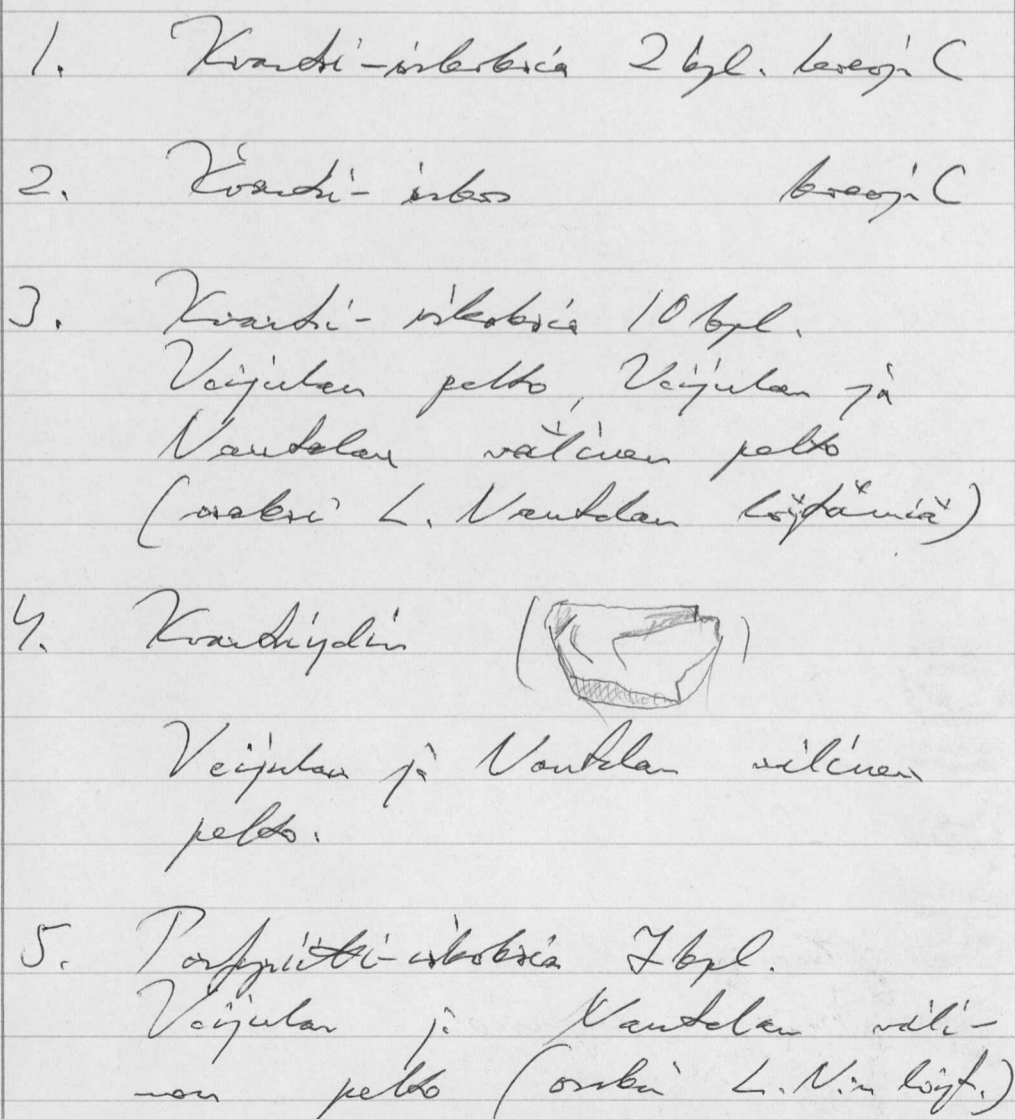 1. Kvartsi-iskoksia 2 kpl. kuoppa C
2. Kvartsi-iskos kuoppa C
3. Kvartsi-iskoksia 10 kpl.
Veijulan pelto, Veijulan ja
Nautelan välinen pelto
(osaksi L. Nautelan löytämiä)
4. Kvartsiydin ( )
Veijulan ja Nautelan välinen
pelto.
5. Porfyriitti-iskoksia 7 kpl.
Veijulan ja Nautelan väli-
nen pelto (osaksi L.N:n löyt.)